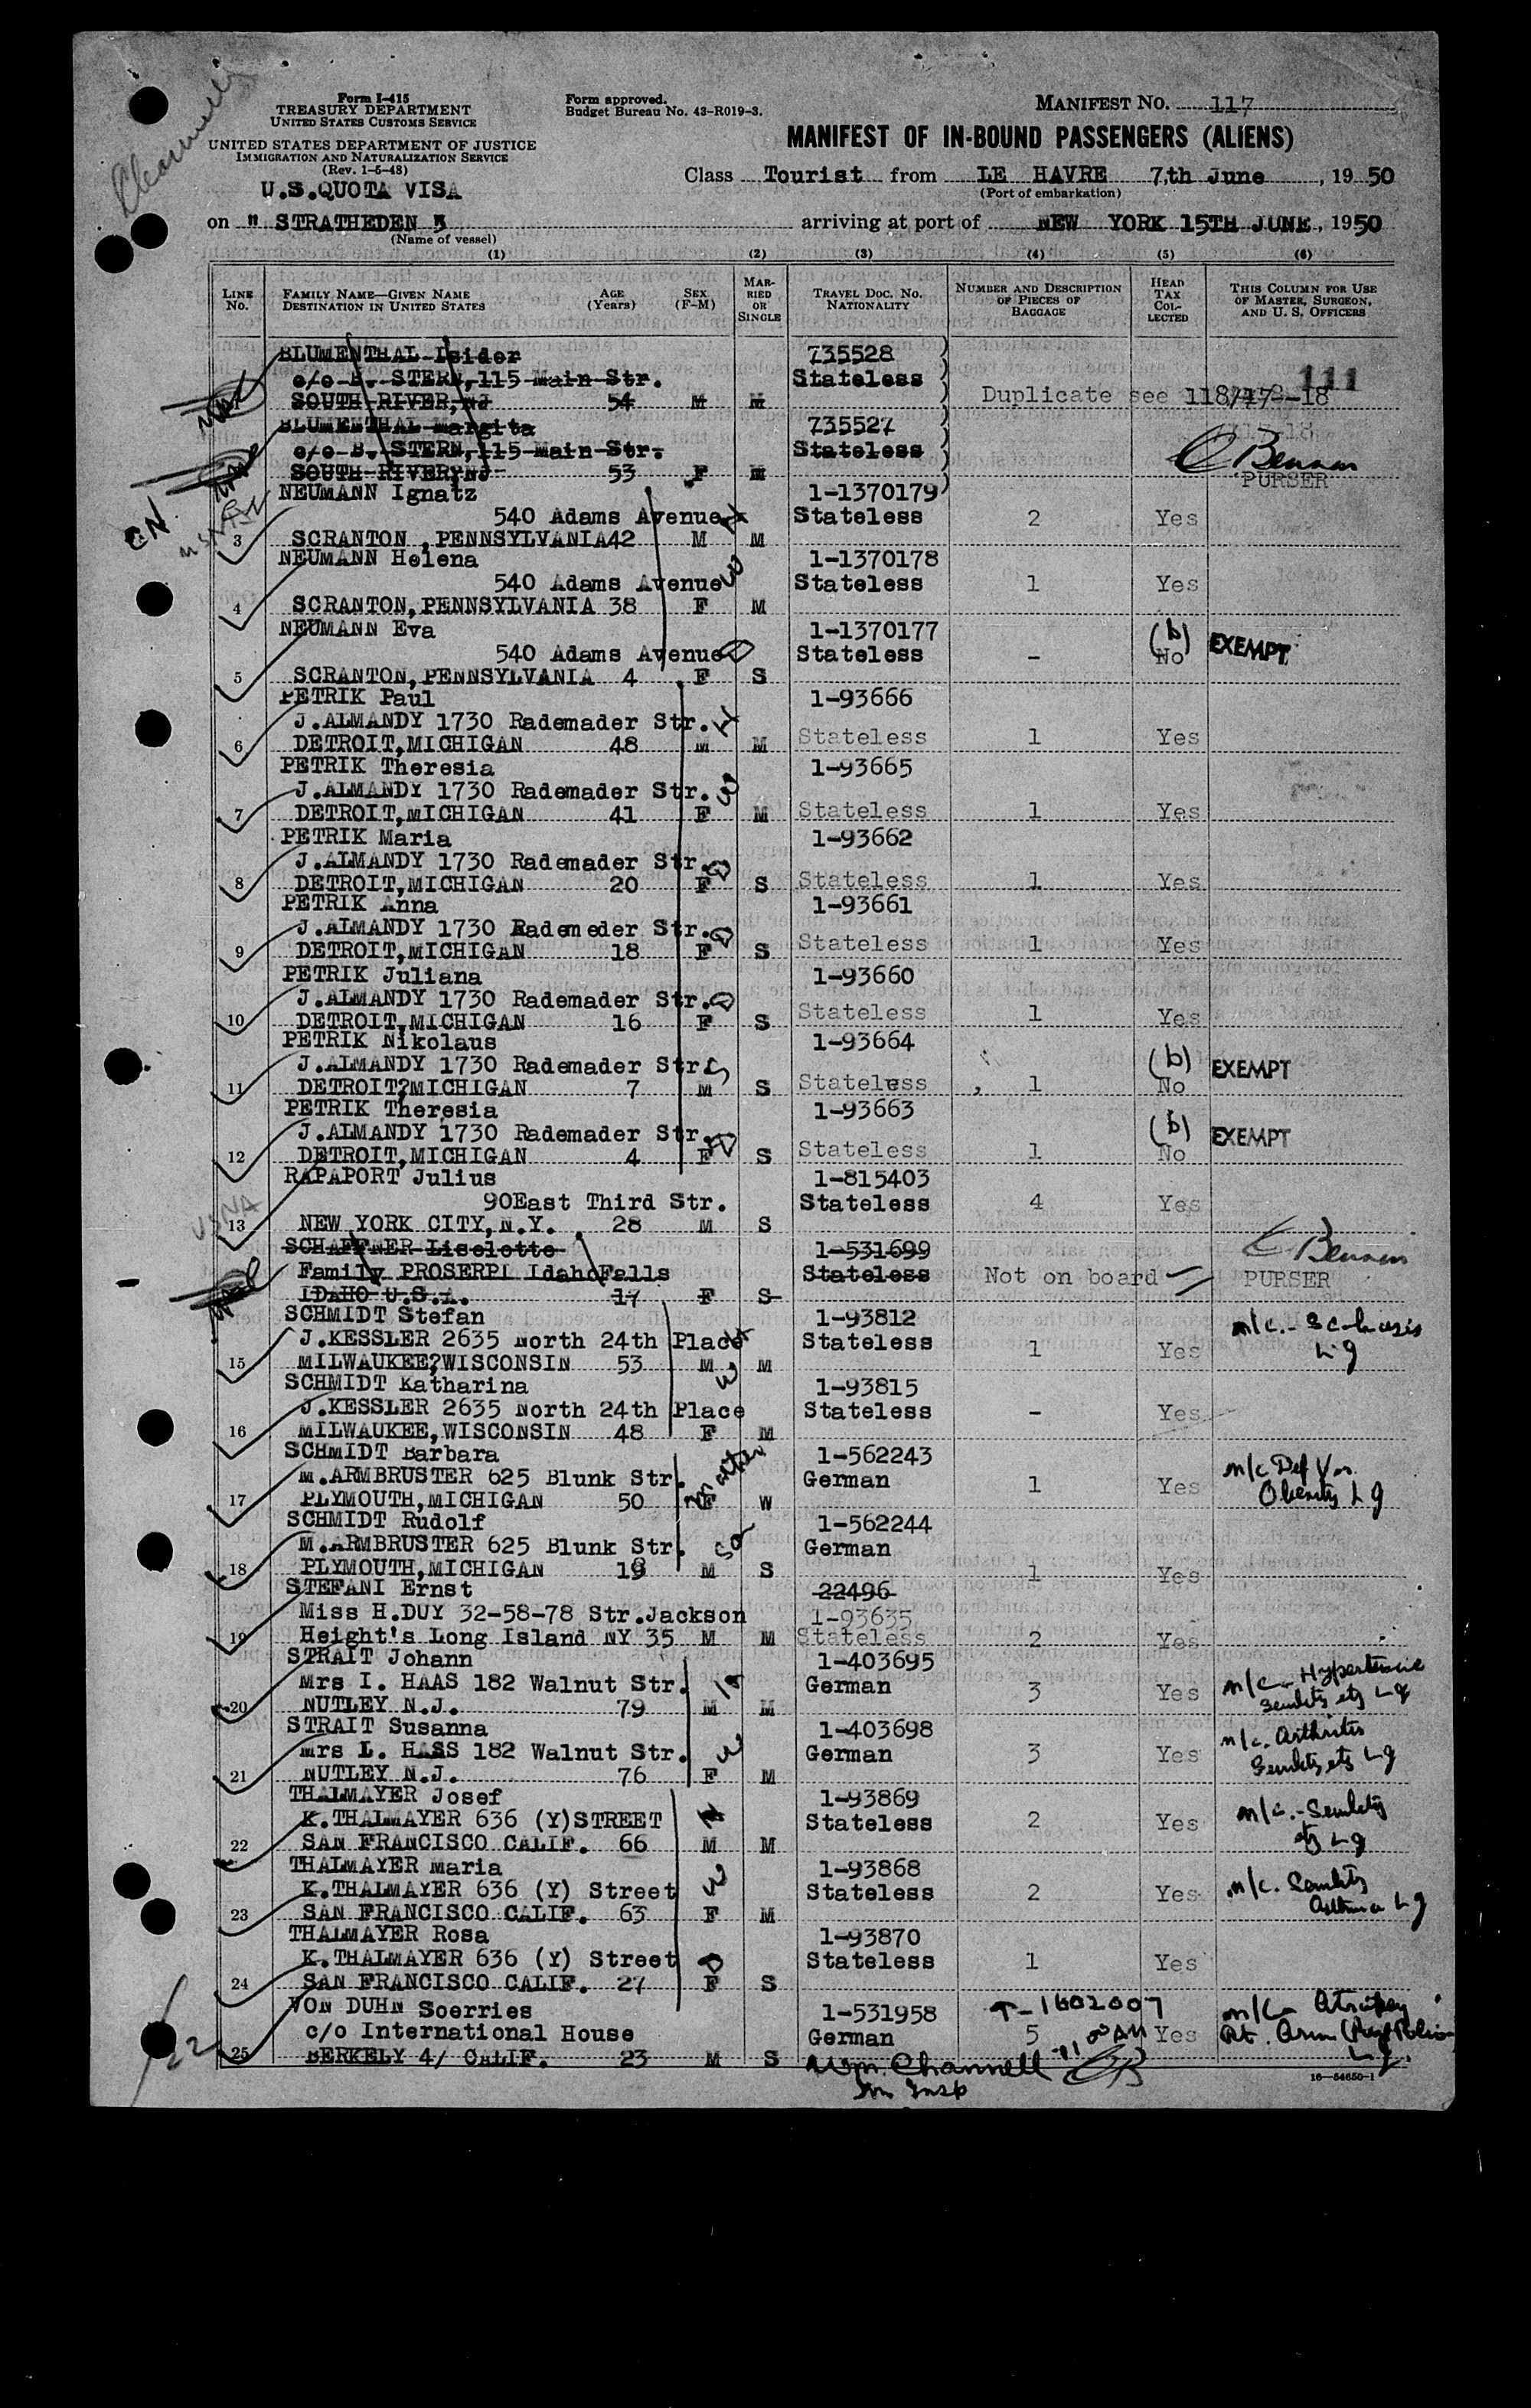 Form I-415
TREASURY DEPARTMENT
UNITED STATES CUSTOMS SERVICE
UNITED STATES DEPARTMENT OF JUSTICE
IMMIGRATION AND NATURALIZATION SERVICE
(Rev. 1-5-48)
U.S.QUOTA VISA
Form approved.
Budget Bureau No. 43-R019-3.
MANIFEST NO. 117
MANIFEST OF IN-BOUND PASSENGERS (ALIENS)
Class Tourist from LE HAVRE 7,th June, 1950
(Port of embarkation)
on " STRATHEDEN " arriving at port of NEW YORK 15TH JUNE, 1950
(Name of vessel)
(1) (2) (3) (4) (5) (6)
LINE No. FAMILY NAME—GIVEN NAME DESTINATION IN UNITED STATES AGE (Years) SEX (F-M) MARRIED OR SINGLE TRAVEL DOC. NO. NATIONALITY NUMBER AND DESCRIPTION OF PIECES OF BAGGAGE HEAD TAX COLLECTED THIS COLUMN FOR USE OF MASTER, SURGEON, AND U. S. OFFICERS
BLUMENTHAL Isidor 735528
c/o B. STERN, 115 Main Str. Stateless 111
SOUTH RIVER, NJ 54 M M Duplicate see 118/17-18
BLUMENTHAL Margita 735527
c/o B. STERN, 115 Main Str. Stateless
SOUTH RIVER, NJ 53 F M PURSER
NEUMANN Ignatz 1-1370179
540 Adams Avenue Stateless 2 Yes
3 SCRANTON ,PENNSYLVANIA 42 M M
NEUMANN Helena 1-1370178
540 Adams Avenue Stateless 1 Yes
4 SCRANTON,PENNSYLVANIA 38 F M
NEUMANN Eva 1-1370177
540 Adams Avenue Stateless - (b) No EXEMPT
5 SCRANTON,PENNSYLVANIA 4 F S
PETRIK Paul 1-93666
J.ALMANDY 1730 Rademader Str.
6 DETROIT,MICHIGAN 48 M M Stateless 1 Yes
PETRIK Theresia 1-93665
J.ALMANDY 1730 Rademader Str.
7 DETROIT,MICHIGAN 41 F M Stateless 1 Yes
PETRIK Maria 1-93662
J.ALMANDY 1730 Rademader Str.
8 DETROIT,MICHIGAN 20 F S Stateless 1 Yes
PETRIK Anna 1-93661
J.ALMANDY 1730 Rademeder Str.
9 DETROIT,MICHIGAN 18 F S Stateless 1 Yes
PETRIK Juliana 1-93660
J.ALMANDY 1730 Rademader Str.
10 DETROIT,MICHIGAN 16 F S Stateless 1 Yes
PETRIK Nikolaus 1-93664
J.ALMANDY 1730 Rademader Str. (b) EXEMPT
11 DETROIT?MICHIGAN 7 M S Stateless 1 No
PETRIK Theresia 1-93663
J.ALMANDY 1730 Rademader Str. (b) EXEMPT
12 DETROIT,MICHIGAN 4 F S Stateless 1 No
RAPAPORT Julius 1-815403
90East Third Str. Stateless 4 Yes
13 NEW YORK CITY,N.Y. 28 M S
SCHAFFNER Liselotte 1-531699
Family PROSERPI IdahoFalls Stateless Not on board PURSER
IDAHO U.S.A. 17 F S
SCHMIDT Stefan 1-93812
J.KESSLER 2635 North 24th Place Stateless 1 Yes
15 MILWAUKEE?WISCONSIN 53 M M
SCHMIDT Katharina 1-93815
J.KESSLER 2635 North 24th Place Stateless - Yes
16 MILWAUKEE,WISCONSIN 48 F M
SCHMIDT Barbara 1-562243
M.ARMBRUSTER 625 Blunk Str. German 1 Yes
17 PLYMOUTH,MICHIGAN 50 F W Obesity
SCHMIDT Rudolf 1-562244
M.ARMBRUSTER 625 Blunk Str. German
18 PLYMOUTH,MICHIGAN 18 M S 1 Yes
STEFANI Ernst 22496
Miss H.DUY 32-58-78 Str.Jackson 1-93635
19 Height's Long Island NY 35 M M Stateless 2 Yes
STRAIT Johann 1-403695
Mrs I. HAAS 182 Walnut Str. German 3 Yes
20 NUTLEY N.J. 79 M M
STRAIT Susanna 1-403698
Mrs L. HASS 182 Walnut Str. German 3 Yes m/c. Arthritis
21 NUTLEY N.J. 76 F M
THALMAYER Josef 1-93869
K.THALMAYER 636 (Y)STREET Stateless 2 Yes
22 SAN FRANCISCO CALIF. 66 M M
THALMAYER Maria 1-93868
K.THALMAYER 636 (Y) Street Stateless 2 Yes
23 SAN FRANCISCO CALIF. 63 F M
THALMAYER Rosa 1-93870
K.THALMAYER 636 (Y) Street Stateless 1 Yes
24 SAN FRANCISCO CALIF. 27 F S
VON DUHN Soerries 1-531958 T-1602007
c/o International House German 5 Yes
25 BERKELY 4/ CALIF. 23 M S
Wm. Channell
Im Insp
16—54650-1